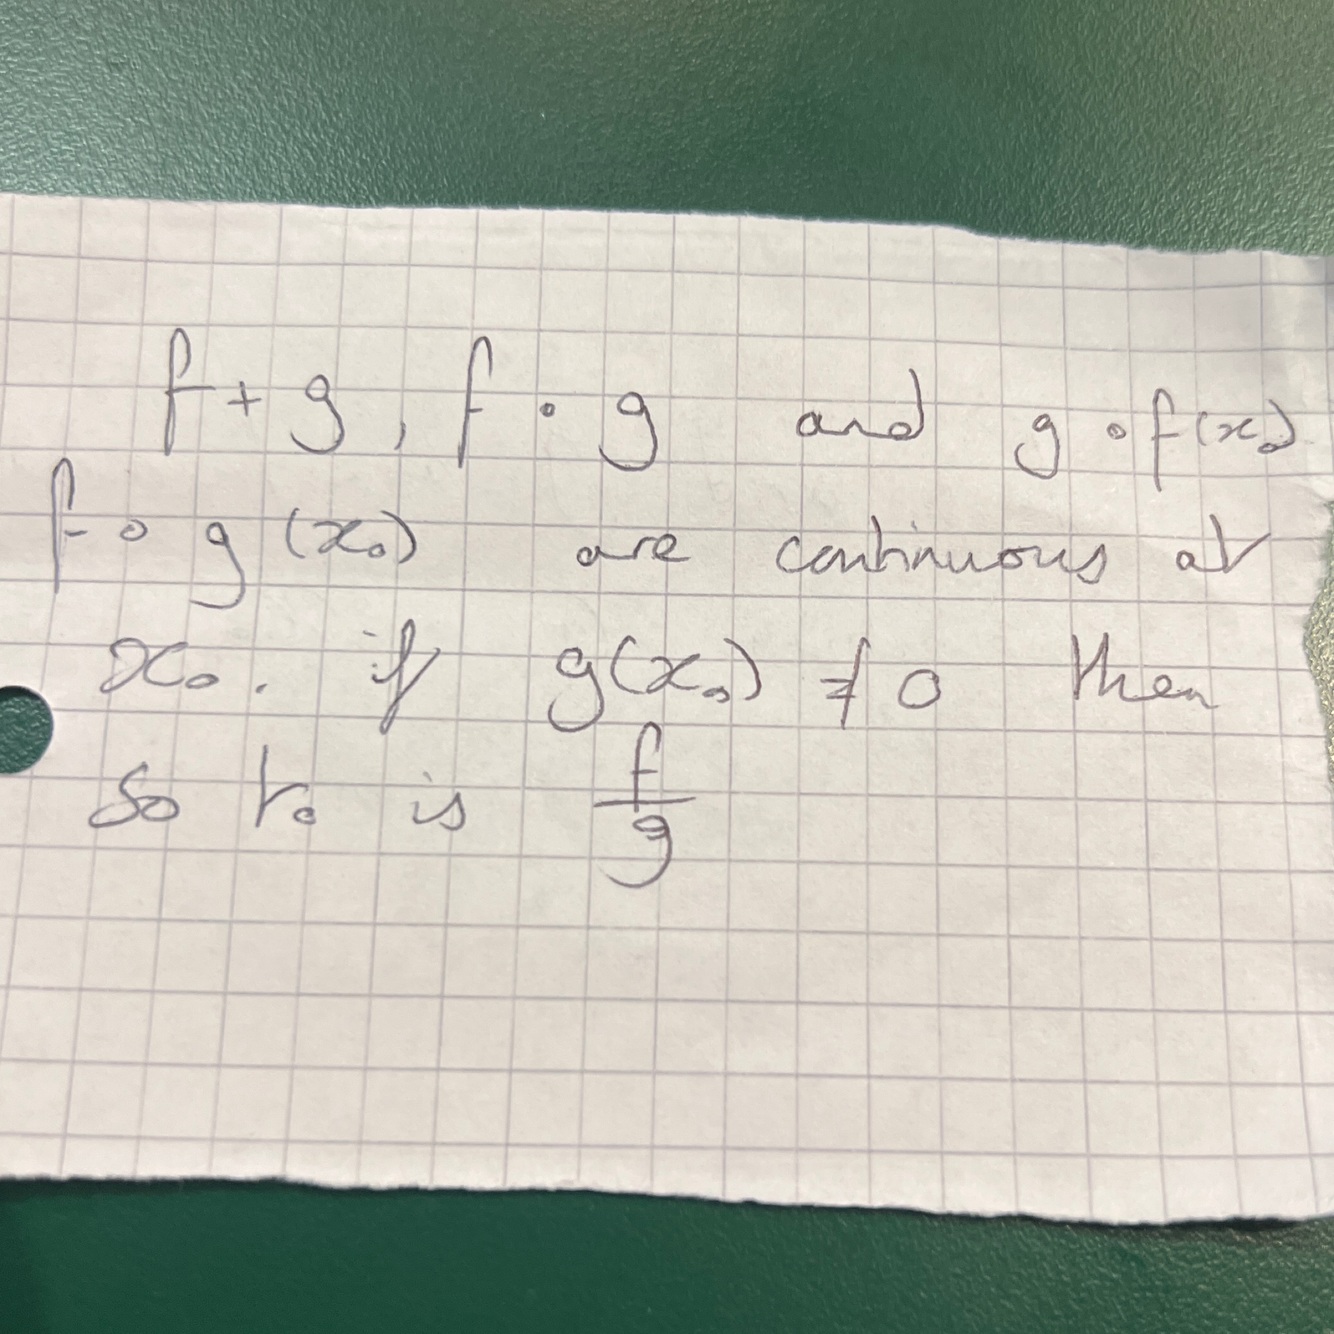 f + g , f · g and g ∘ f(x₀)
f ∘ g (x₀) are continuous at
x₀. if g(x₀) ≠ 0 then
so to is f/g